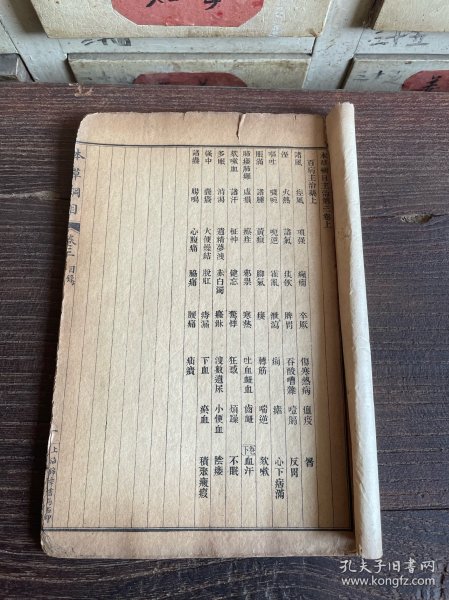 本草綱目主治第三卷上
百病主治藥上
諸風 痙風 項强 癲癇 卒厥 傷寒熱病 瘟疫 暑
溼 火熱 諸氣 痰飲 脾胃 吞酸嘈雜 噎膈 反胃
嘔吐 噦啘 呃逆 霍亂 泄瀉 痢 瘧 心下痞滿
脹滿 諸腫 黃疸 脚氣 痿 轉筋 喘逆 欬嗽
肺痿肺癰 虛損 瘵疰 邪祟 寒熱 吐血衄血 齒衄 血汗
欬嗽血 諸汗 怔忡 健忘 驚悸 狂惑 煩躁 不眠
多眠 消渴 遺精夢洩 赤白濁 癃淋 溲數遺尿 小便血 陰痿
强中 囊癢 大便燥結 脫肛 痔漏 下血 瘀血 積聚癥瘕
諸蟲 腸鳴 心腹痛 脇痛 腰痛 疝㿉
本草綱目
卷三 目錄
孔夫子旧书网
www.kongfz.com